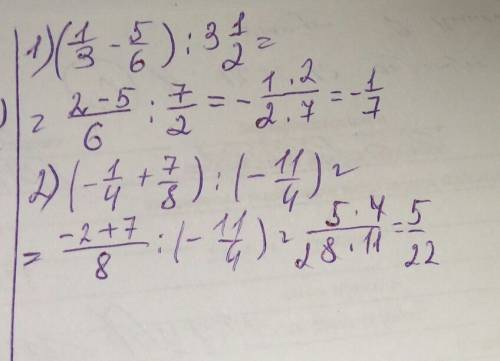 1) (1/3 - 5/6) : 3 1/2 =
= (2-5)/6 : 7/2 = - (1·2)/(2·7) = - 1/7
2) (- 1/4 + 7/8) : (- 11/4) =
= (-2+7)/8 : (- 11/4) = (5·4)/(2 8·11) = 5/22